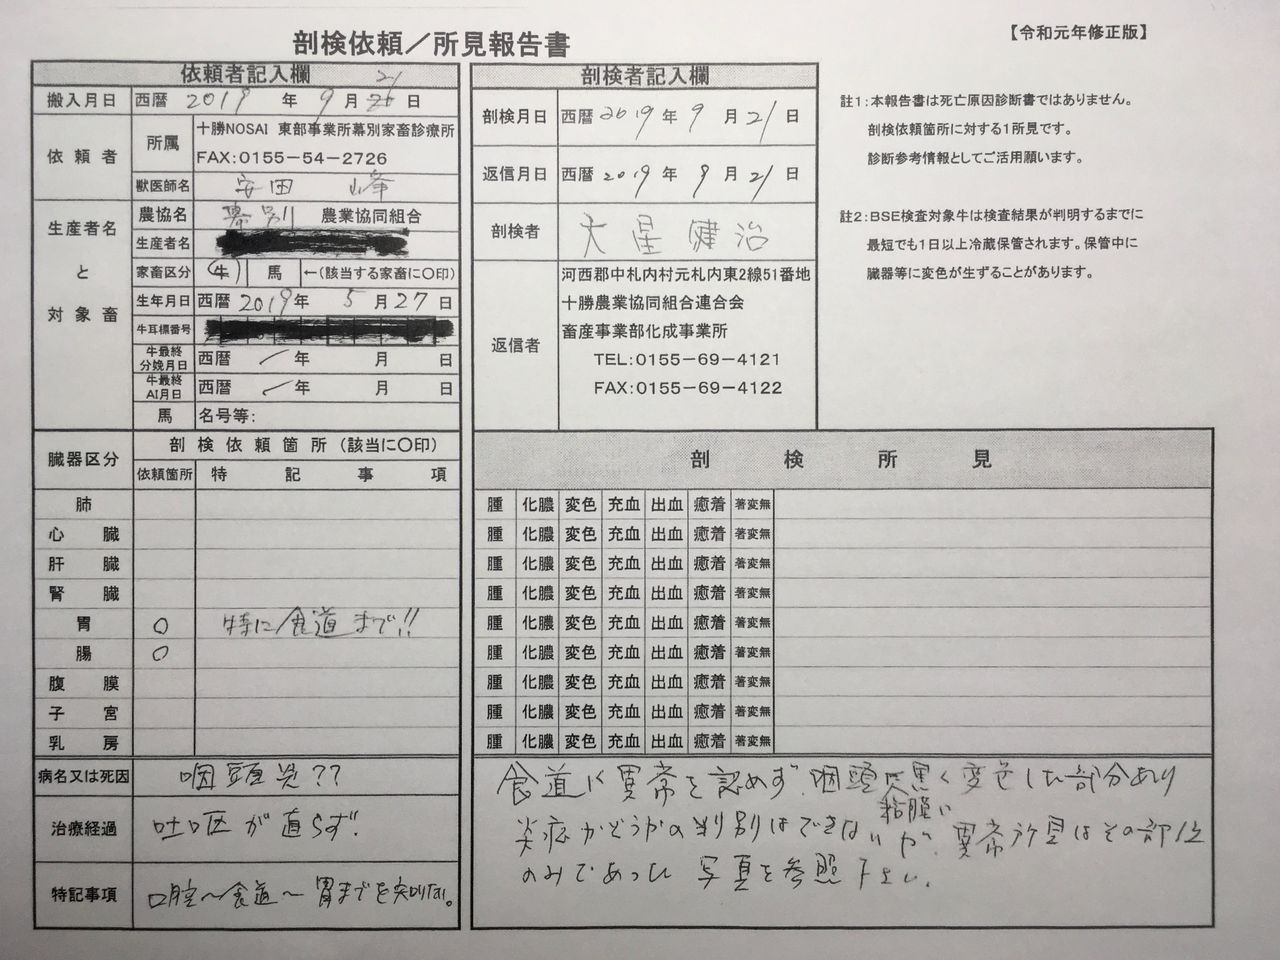 剖検依頼／所見報告書
【令和元年修正版】
依頼者記入欄
搬入月日 西暦 2019 年 9 月 21 日
依頼者
所属
十勝NOSAI 東部事業所幕別家畜診療所
FAX:0155-54-2726
獣医師名 安田 峰
生産者名と対象畜
農協名 幕別 農業協同組合
生産者名
家畜区分 牛 馬 ←(該当する家畜に〇印)
生年月日 西暦 2019 年 5 月 27 日
牛耳標番号
牛最終分娩月日 西暦 年 月 日
牛最終AI月日 西暦 年 月 日
馬 名号等:
剖検者記入欄
剖検月日 西暦 2019 年 9 月 21 日
返信月日 西暦 2019 年 9 月 21 日
剖検者 大星健治
返信者
河西郡中札内村元札内東2線51番地
十勝農業協同組合連合会
畜産事業部化成事業所
TEL:0155-69-4121
FAX:0155-69-4122
註1:本報告書は死亡原因診断書ではありません。
剖検依頼箇所に対する1所見です。
診断参考情報としてご活用願います。
註2:BSE検査対象牛は検査結果が判明するまでに
最短でも1日以上冷蔵保管されます。保管中に
臓器等に変色が生ずることがあります。
臓器区分
剖検依頼箇所(該当に〇印)
依頼箇所 特記事項
剖検所見
肺 腫 化膿 変色 充血 出血 癒着 著変無
心臓 腫 化膿 変色 充血 出血 癒着 著変無
肝臓 腫 化膿 変色 充血 出血 癒着 著変無
腎臓 腫 化膿 変色 充血 出血 癒着 著変無
胃 〇 特に食道まで!! 腫 化膿 変色 充血 出血 癒着 著変無
腸 〇 腫 化膿 変色 充血 出血 癒着 著変無
腹膜 腫 化膿 変色 充血 出血 癒着 著変無
子宮 腫 化膿 変色 充血 出血 癒着 著変無
乳房 腫 化膿 変色 充血 出血 癒着 著変無
病名又は死因 咽頭炎??
治療経過 吐区が直らず.
特記事項 口腔〜食道〜胃までを
食道に異常を認めず.咽頭 黒く変色した部分あり
粘膜に
炎症かどうかの判別はできないが、異常所見はその部位
のみであった 写真を参照下さい.